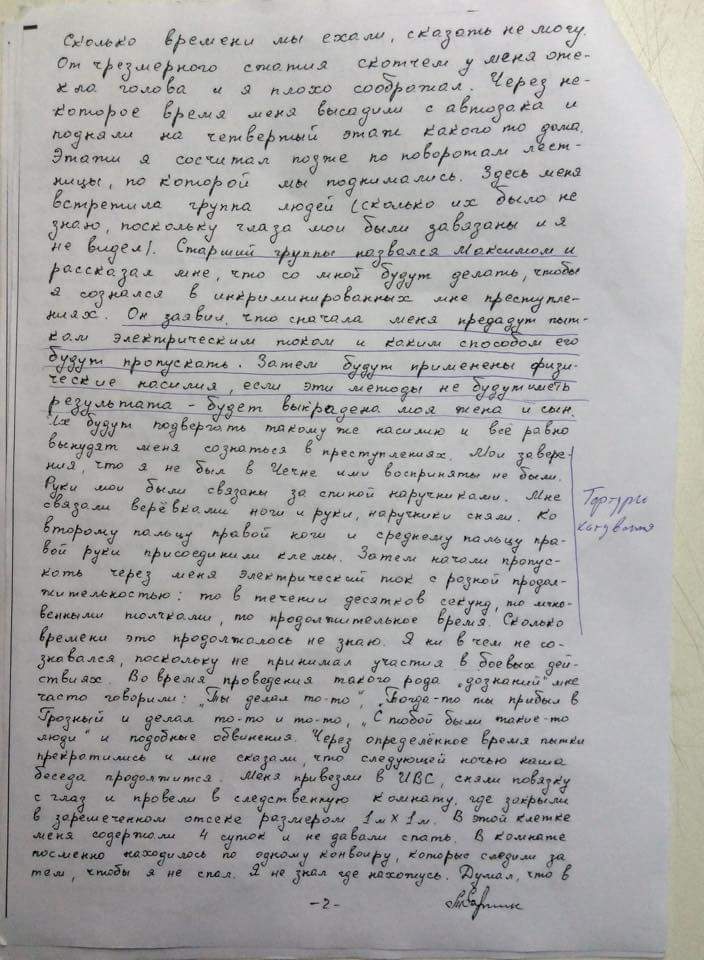 Сколько времени мы ехали, сказать не могу.
От чрезмерного сжатия скотчем у меня оте-
кла голова и я плохо соображал. Через не-
которое время меня высадили с автозака и
подняли на четвертый этаж какого то дома.
Этажи я сосчитал позже по поворотам лест-
ницы, по которой мы поднимались. Здесь меня
встретила группа людей (сколько их было не
знаю, поскольку глаза мои были завязаны и я
не видел). Старший группы назвался Максимом и
рассказал мне, что со мной будут делать, чтобы
я сознался в инкриминированных мне преступле-
ниях. Он заявил, что сначала меня предадут пыт-
кам электрическим током и каким способом его
будут пропускать. Затем будут применены физи-
ческие насилия, если эти методы не будут иметь
результата - будет выкрадена моя жена и сын.
Их будут подвергать такому же насилию и всё равно
вынудят меня сознаться в преступлениях. Мои завере-
ния, что я не был в Чечне ими восприняты не были.
Руки мои были связаны за спиной наручниками. Мне
связали верёвками ноги и руки, наручники сняли. Ко
второму пальцу правой ноги и среднему пальцу пра-
вой руки присоединили клемы. Затем начали пропус-
кать через меня электрический ток с розной продол-
жительностью: то в течении десятков секунд, то мгно-
венными толчками, то продолжительное время. Сколько
времени это продолжалось не знаю. Я ни в чем не со-
знавался, поскольку не принимал участия в боевых дей-
ствиях. Во время проведения такого рода „дознаний" мне
часто говорили: „Ты делал то-то", „Тогда-то ты прибыл в
Грозный и делал то-то и то-то, „С тобой были такие-то
люди" и подобные обвинения. Через определённое время пытки
прекратились и мне сказали, что следующей ночью наша
беседа продолжится. Меня привезли в ИВС, сняли повязку
с глаз и провели в следственную комнату, где закрыли
в зарешеченном отсеке размером 1м х 1м. В этой клетке
меня содержали 4 суток и не давали спать. В комнате
посменно находилось по одному конвоиру, которые следили за
тем, чтобы я не спал. Я не знал где нахожусь. Думал, что в
- 2 -
Тортури
катування